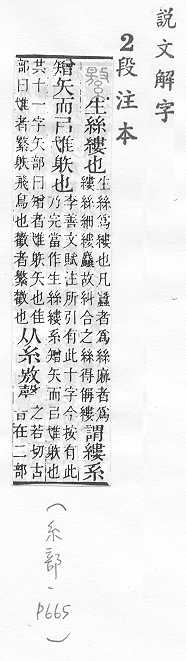 說文解字
2 段注本
𦅾生絲縷也生絲爲縷也凡蠶者爲絲麻者爲
縷絲細縷麤故糾合之絲得偁縷謂縷系
矰矢而㠯隿䠶也李善文賦注所引有此十字今按有此
乃完當作生絲縷系矰矢而㠯隿䠶也
共十一字矢部曰矰者隿䠶矢也隹
部曰隿者𦅾䠶飛鳥也𦅾者𦅾也从糸敫聲之若切古
音在二部
(糸部-P665)